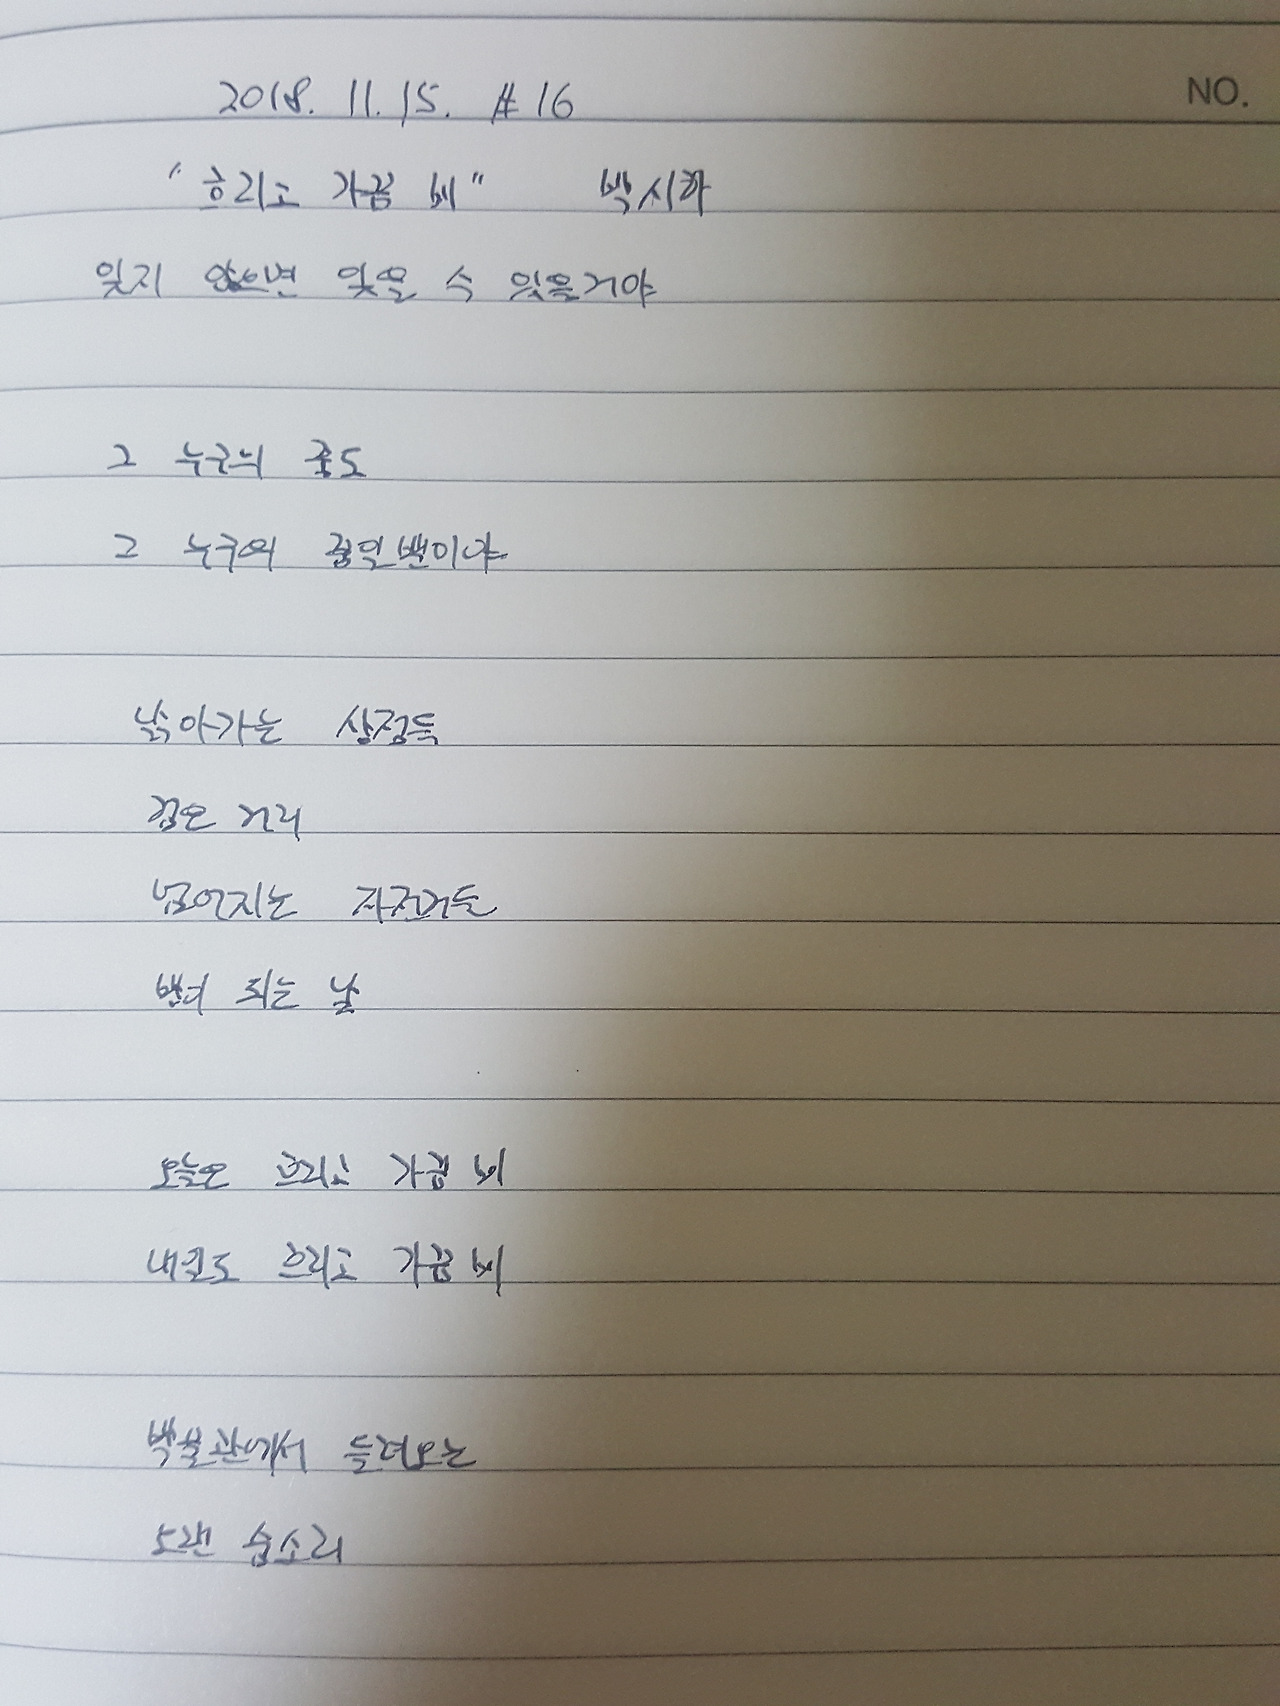 2018. 11. 15. #16
NO.
"흐리고 가끔 비" 박시하
잊지 않으면 잊을 수 있을거야
그 누구의 중도
그 누구의 꿈일뿐이야
낡아가는 상점들
검은 거리
넘어지는 자전거들
번더 되는 날
오늘은 흐리고 가끔 비
내일도 흐리고 가끔 비
박물관에서 들려오는
오랜 숨소리